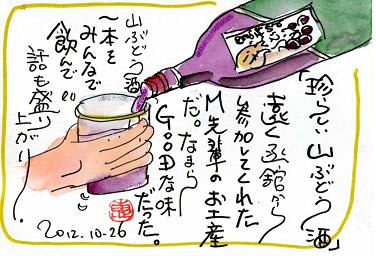 「珍らしい山ぶどう酒」
遠く函館から
参加してくれた
M先輩のお土産
だ。なまら
GOODな味
だった。
山ぶどう酒
一本を
みんなで
飲んで…
話も盛り
上がり。
2012.10-26